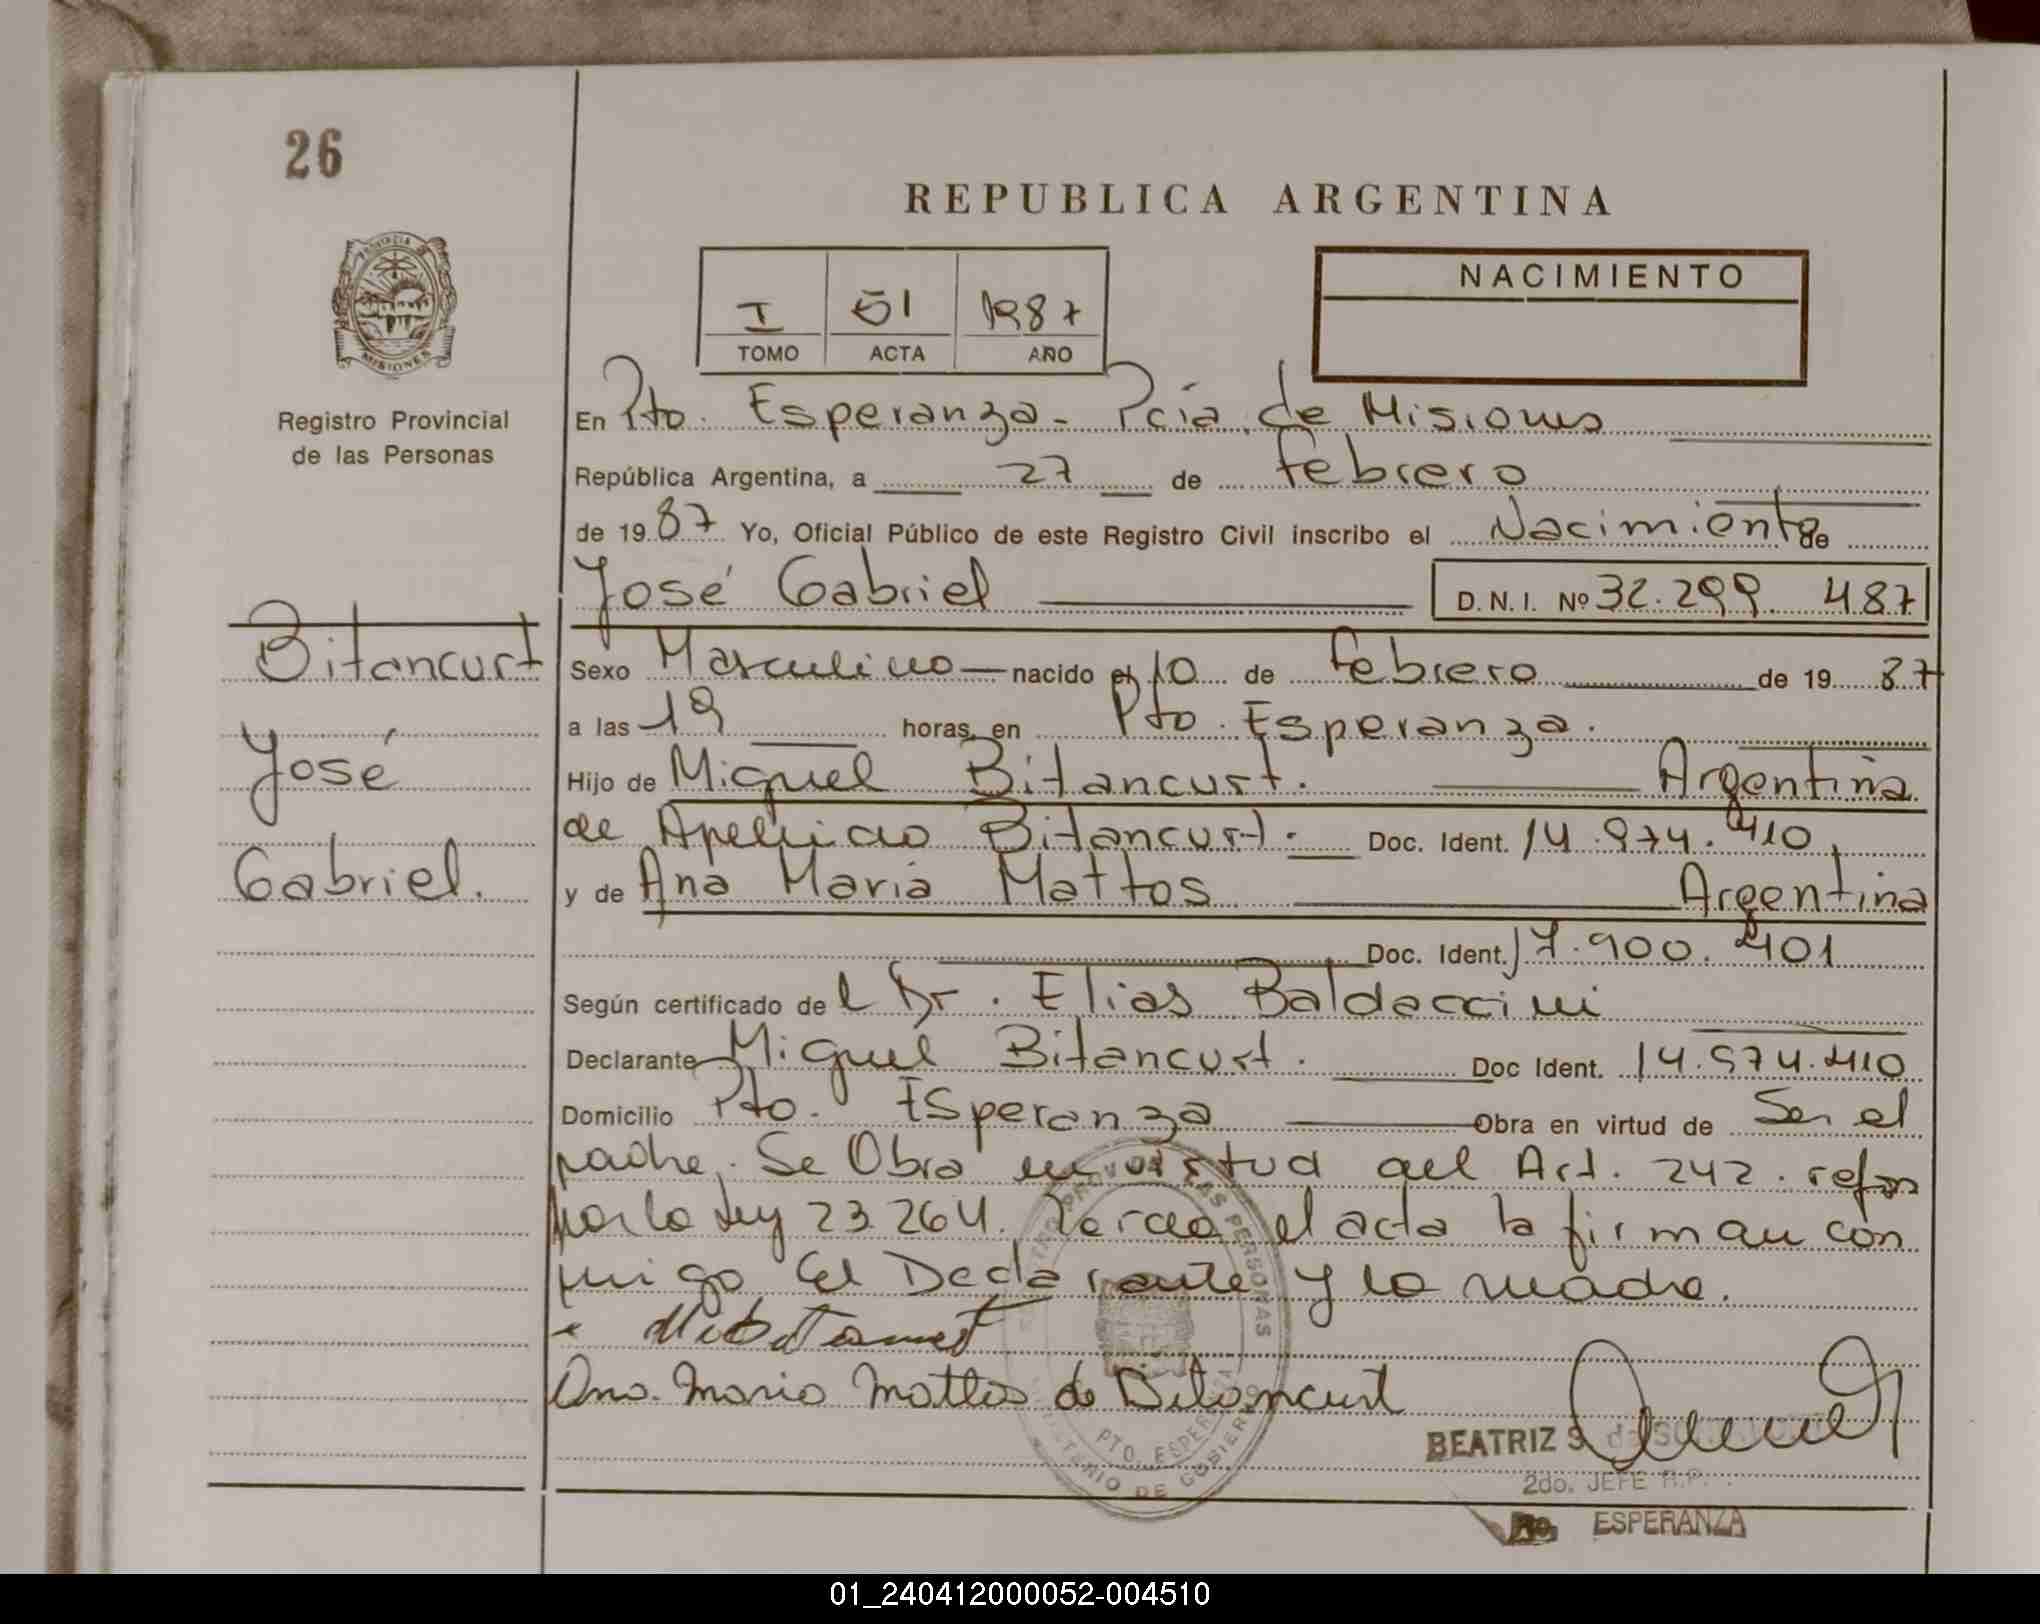 26
REPUBLICA ARGENTINA
PROVINCIA
MISIONES
Registro Provincial
de las Personas
I 51 1987
TOMO ACTA AÑO
NACIMIENTO
En Pto. Esperanza - Pcia. de Misiones
República Argentina, a 27 de febrero
de 1987 Yo, Oficial Público de este Registro Civil inscribo el Nacimiento de
José Gabriel D.N.I. Nº 32.299.487
Bitancurt
José
Gabriel.
Sexo Masculino nacido el 10 de febrero de 1987
a las 19 horas, en Pto. Esperanza.
Hijo de Miguel Bitancurt. Argentina
de Apellido Bitancurt. Doc. Ident. 14.974.410
y de Ana Maria Mattos Argentina
Doc. Ident. 17.900.401
Según certificado del Dr. Elias Baldaccini
Declarante Miguel Bitancurt. Doc Ident. 14.974.410
Domicilio Pto. Esperanza Obra en virtud de Ser el
padre. Se Obra en virtud del Art. 242. refor
por la ley 23.264. el acta la firman con
migo El Declarante y la madre.
Ana Maria Mattos de Bitancurt
PTO. ESPERANZA
MINISTERIO DE GOBIERNO
BEATRIZ S. de
2do. JEFE R.P.
Pto. ESPERANZA
01_240412000052-004510